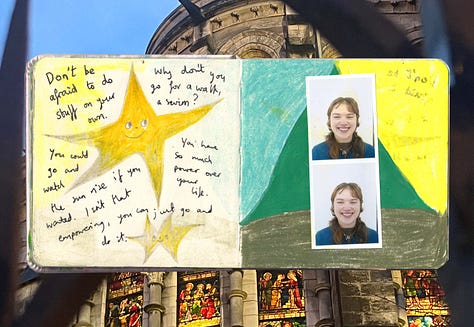 Don't be
afraid to do
stuff on your
own.
Why don't you
go for a walk,
a swim?
You have
so much
power over
your
life.
You could
go and
watch
the sun rise if you
wanted. Isn't that
empowering, you can just go and
do it.